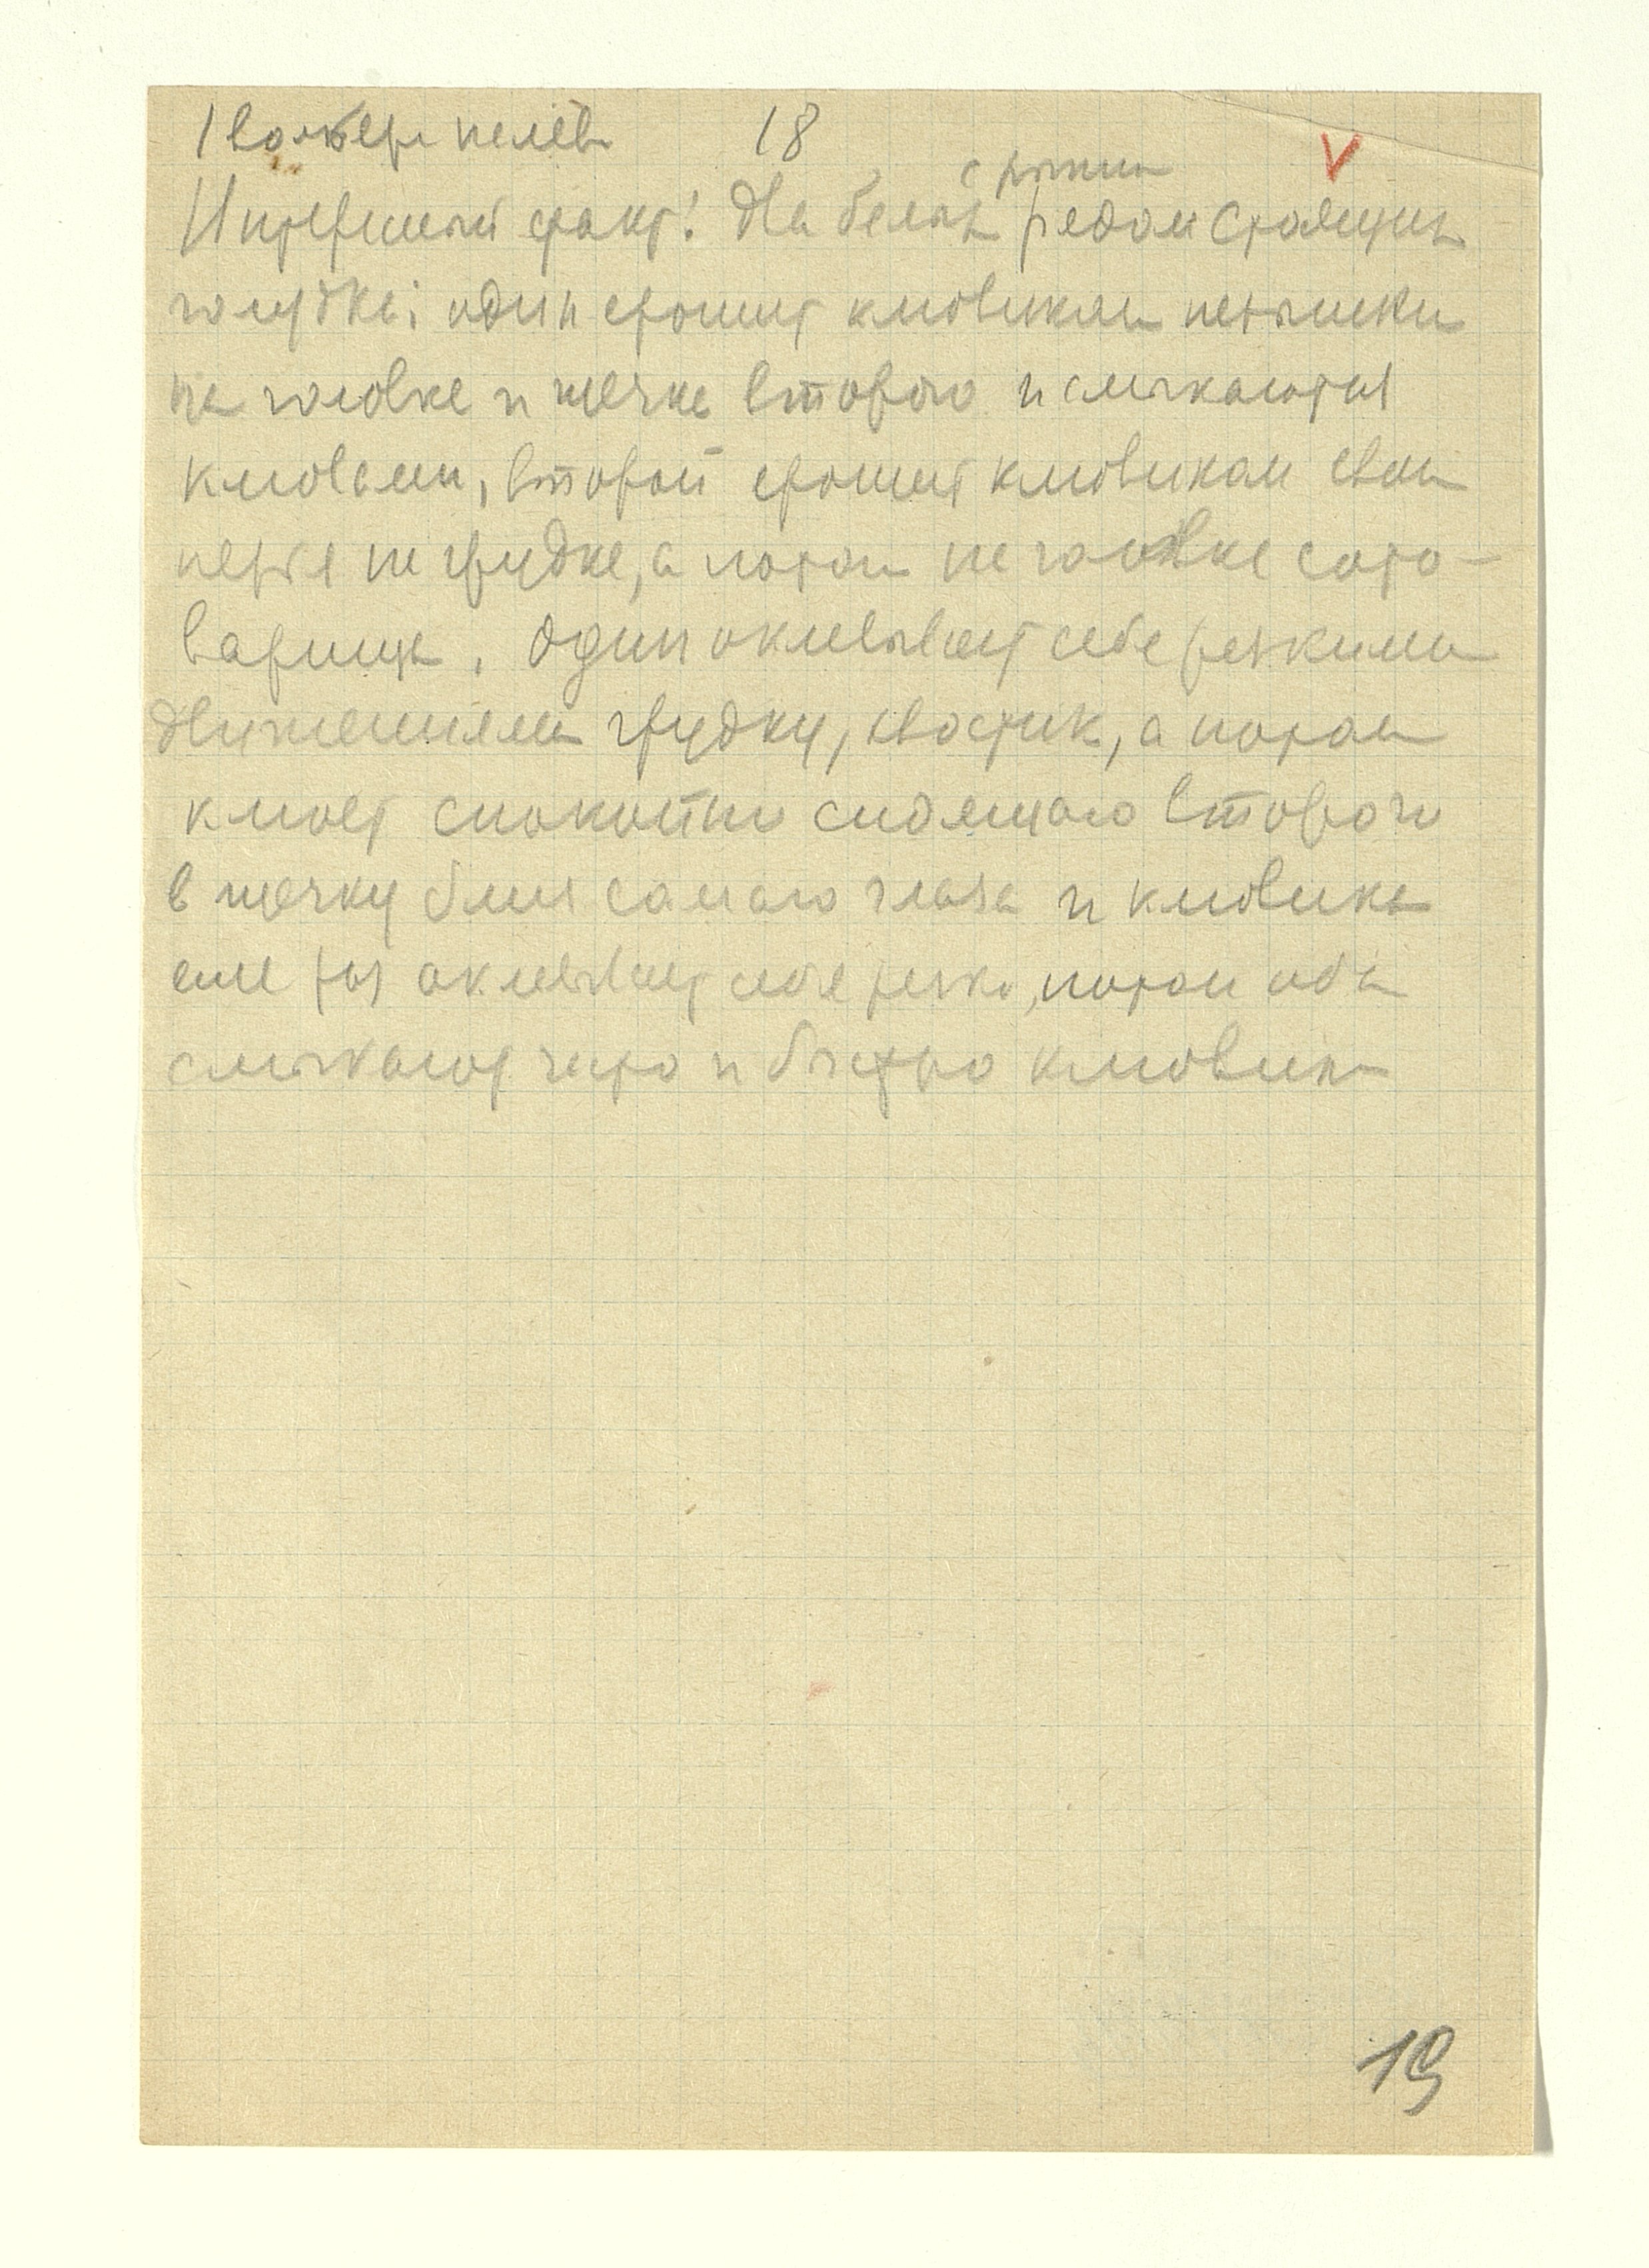 18
с рыжим
Интересный факт! Два белых рядом стоящих
голубка: один ерошит клювиком пёрышки
на головке и щечке второго и смыкаются
клювами, второй ерошит клювиком свои
перья на грудке, а потом на головке сото-
варища. Один оклевывает себе резкими
движениями грудку, хвостик, а потом
клюет спокойно сидящего второго
в щечку близ самого глаза и клювика
еще раз оклевывает себя резко, потом оба
смыкают часто и быстро клювики
19